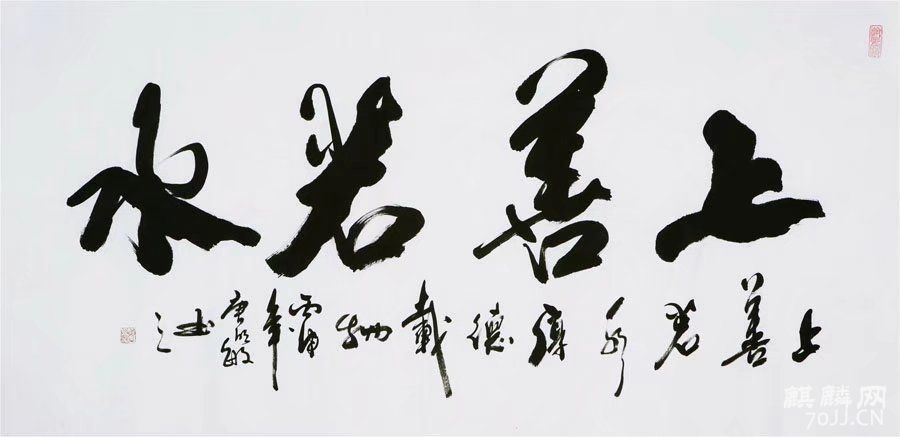 上善若水
上善若水厚德載物丙申年
麒麟网
70JJ.CN